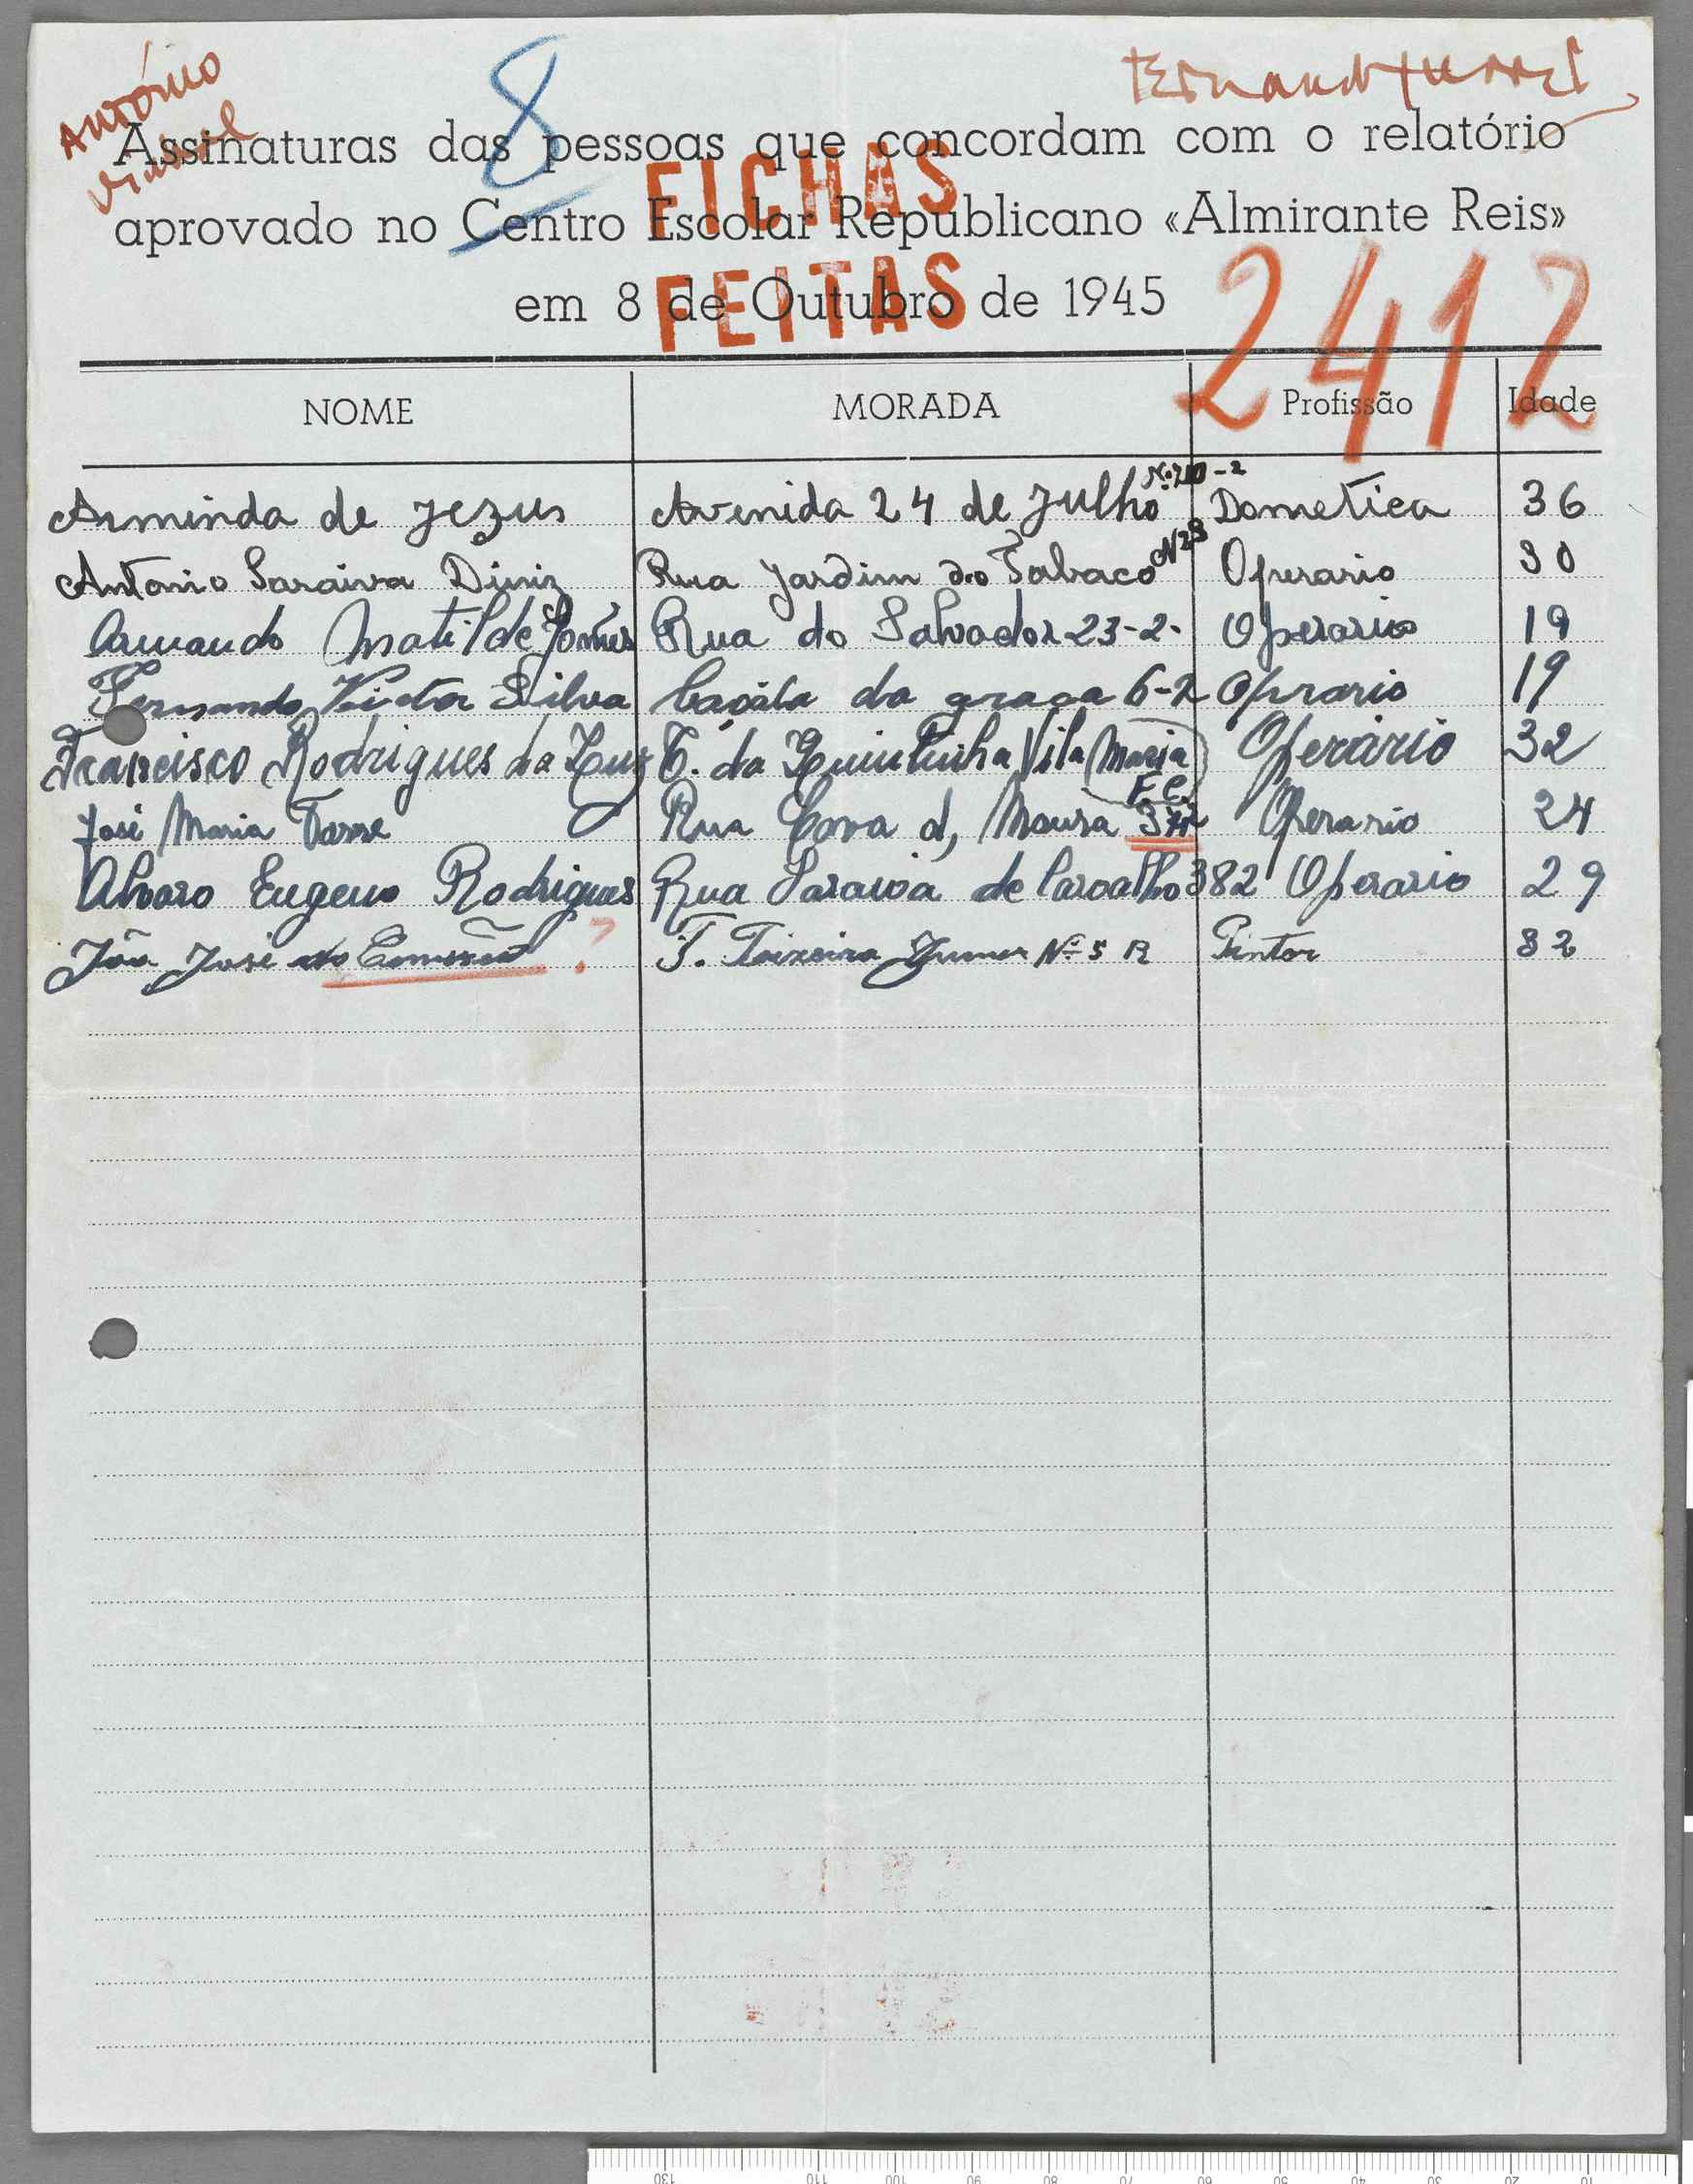 António
8
Assinaturas das pessoas que concordam com o relatório
aprovado no Centro Escolar Republicano «Almirante Reis»
em 8 de Outubro de 1945
FICHAS
FEITAS
2412
NOME MORADA Profissão Idade
Arminda de Jezus Avenida 24 de Julho Dometica 36
Antonio Saraiva Diniz Rua Jardim do Tabaco Operario 30
Armando Matilde Rua do Salvador 23-2- Operario 19
Fernando Victor Silva da graça 6-2 Oprario 19
Francisco Rodrigues da Luz T. da Quintinha Vila Maria Operário 32
F. C.
José Maria Rua Cova d, Moura Operario 24
Alvaro Eugenio Rodrigues Rua Saraiva de Carvalho 382 Operario 29
João José ? T. Teixeira Nº 5 R Pintor 32